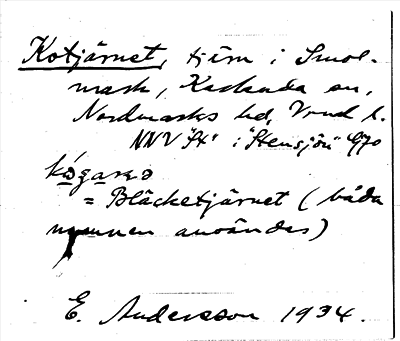 Kotjärnet, tjärn i Smol-
mark, Karlanda sn,
Nordmarks hd, Vrml l.
NNV "St" i "Stensjön" G70
= Bläcketjärnet (båda
namnen användes)
E. Andersson 1934.